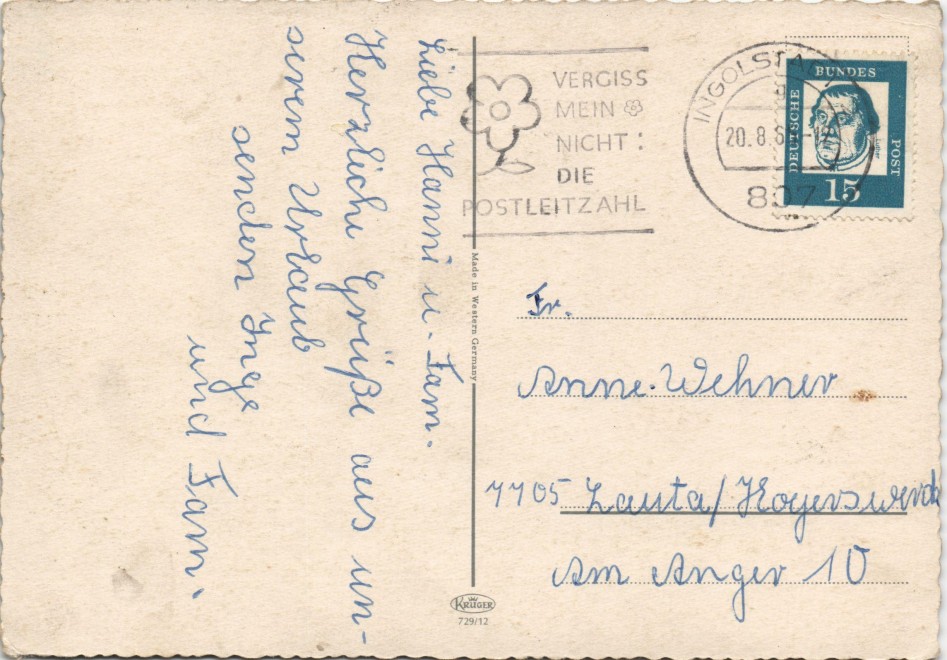 Liebe Hanni u. Fam.
Herzliche Grüße aus un-
serem Urlaub
senden Inge
und Fam.
VERGISS
MEIN
NICHT:
DIE
POSTLEITZAHL
INGOLSTADT
20.8.6
807
DEUTSCHE
BUNDES
POST
15
Made in Western Germany
Fr.
Anne Wehner
7705 Lauta/Hoyerswerda
Am Anger 10
KRÜGER
729/12